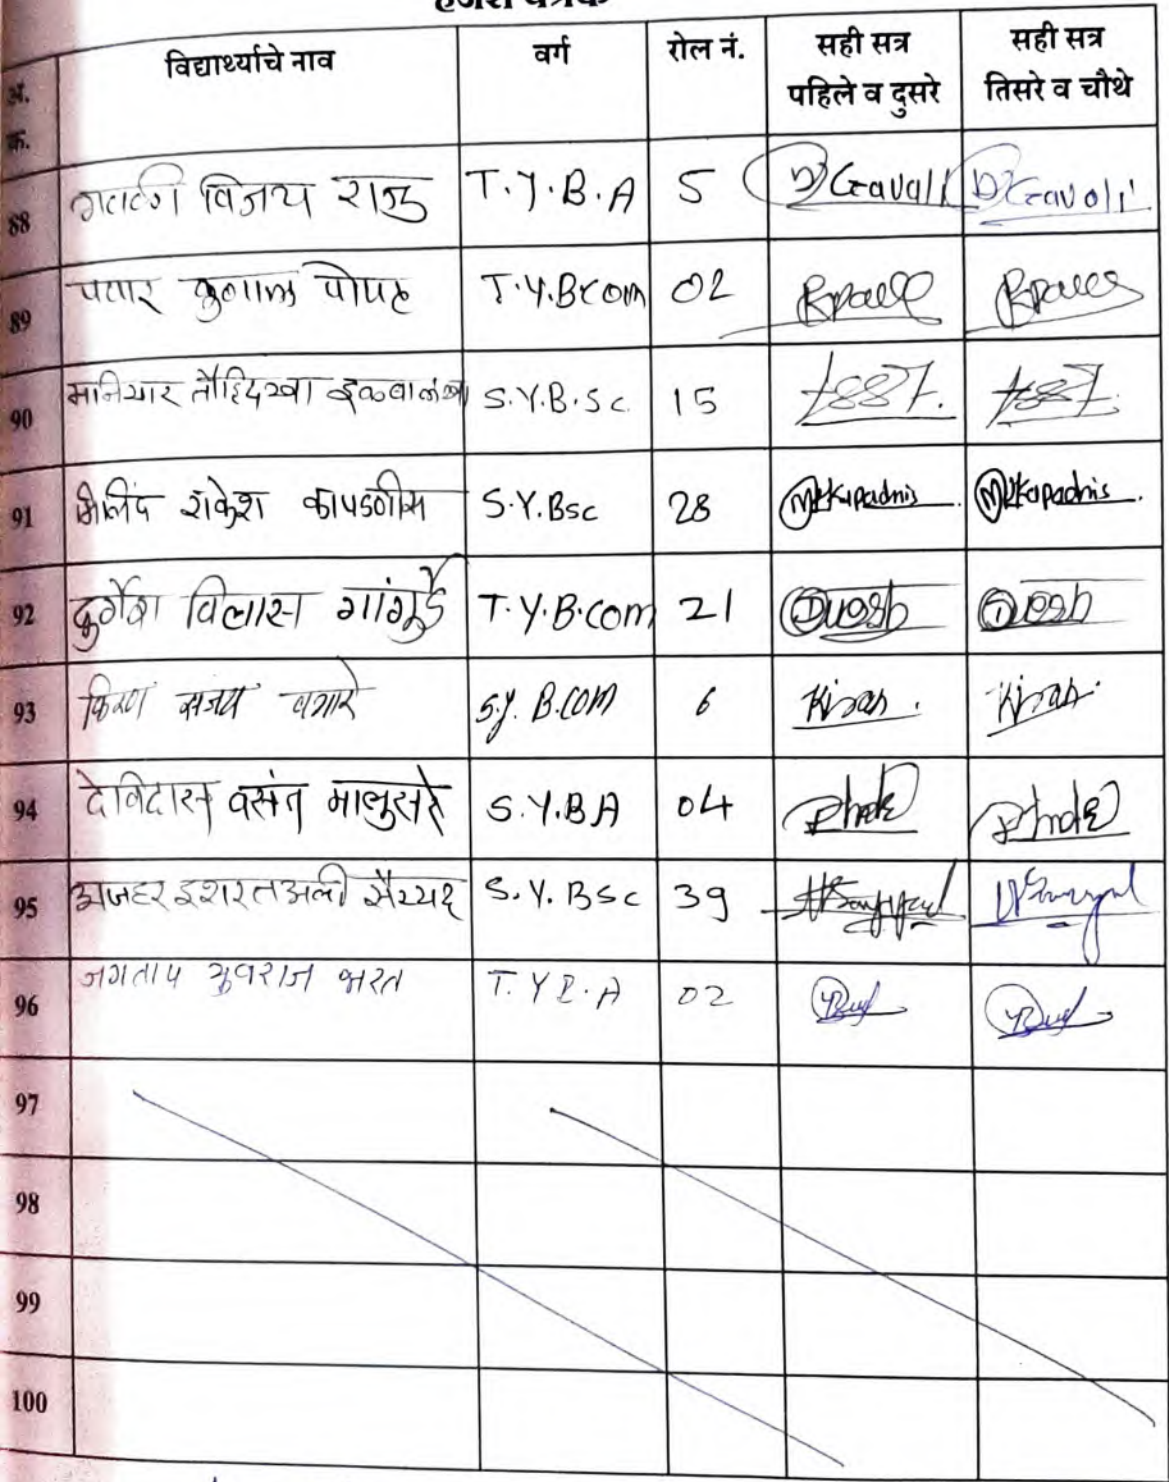 हजेरी पत्रक
अ. क्र. विद्यार्थ्याचे नाव वर्ग रोल नं. सही सत्र पहिले व दुसरे सही सत्र तिसरे व चौथे
88 गवळी विजय राजु T.Y.B.A 5 Gavali Gavali
89 पवार कुणाल पोपट T.Y.Bcom 02
90 मनियार तौहिदखा इकबालखा S.Y.B.Sc. 15
91 मिलिंद राकेश कापडणीस S.Y.Bsc 28 MRKapadnis MRKapadnis
92 दुर्गेश विलास गांगुर्डे T.Y.B.com 21
93 किरण संजय वगारे S.Y. B.COM 6 Kiran Kiran
94 देविदास वसंत मालुसरे S.Y.BA 04
95 अजहर इशरतअली सैय्यद S.Y. BSc 39
96 जगताप युवराज भरत T.Y B.A 02
97
98
99
100